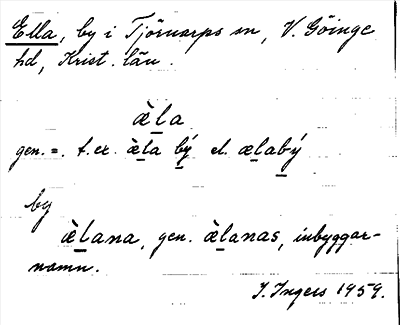 Ella, by i Tjörnarps sn, V. Göinge
hd, Krist. län.
æ̀la
gen. =. t. ex. æ̀la bý el. ælabý
by
æ̀lana, gen. æ̀lanas, inbyggar-
namn.
I. Ingers 1959.